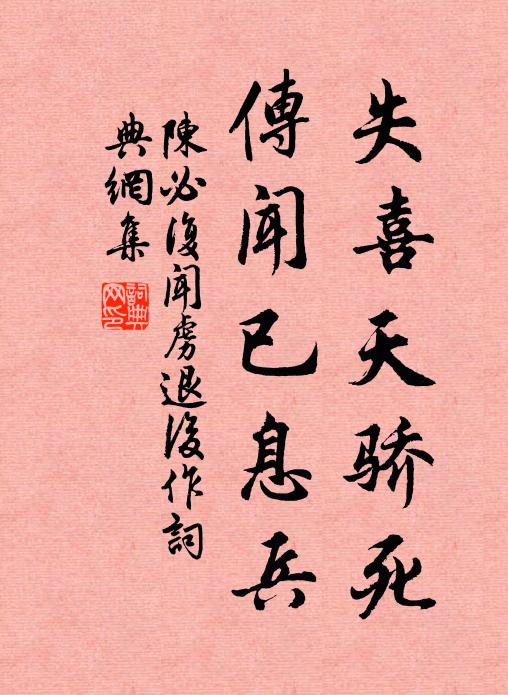 失喜天骄死
傳聞已息兵
陳必復聞虜退後作詞
典網集
詞典
网印